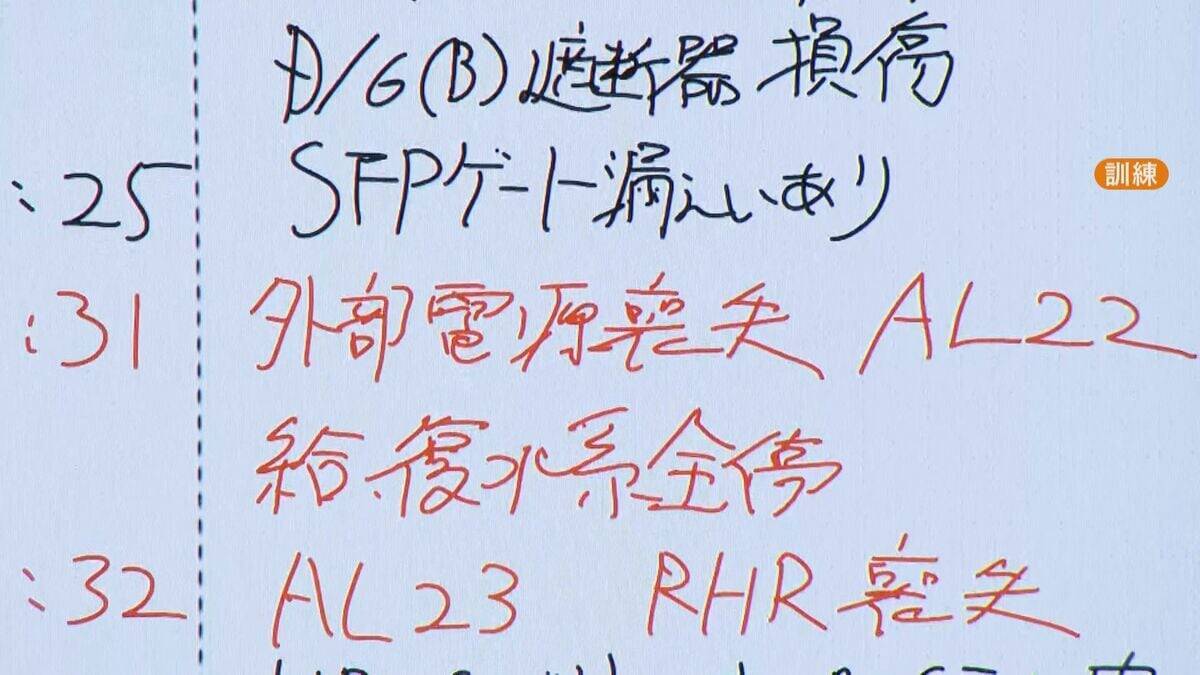 D/G(B)遮断器 損傷
:25 SFPゲート漏えいあり
訓練
:31 外部電源喪失 AL22
給・復水系全停
:32 AL23 RHR喪失